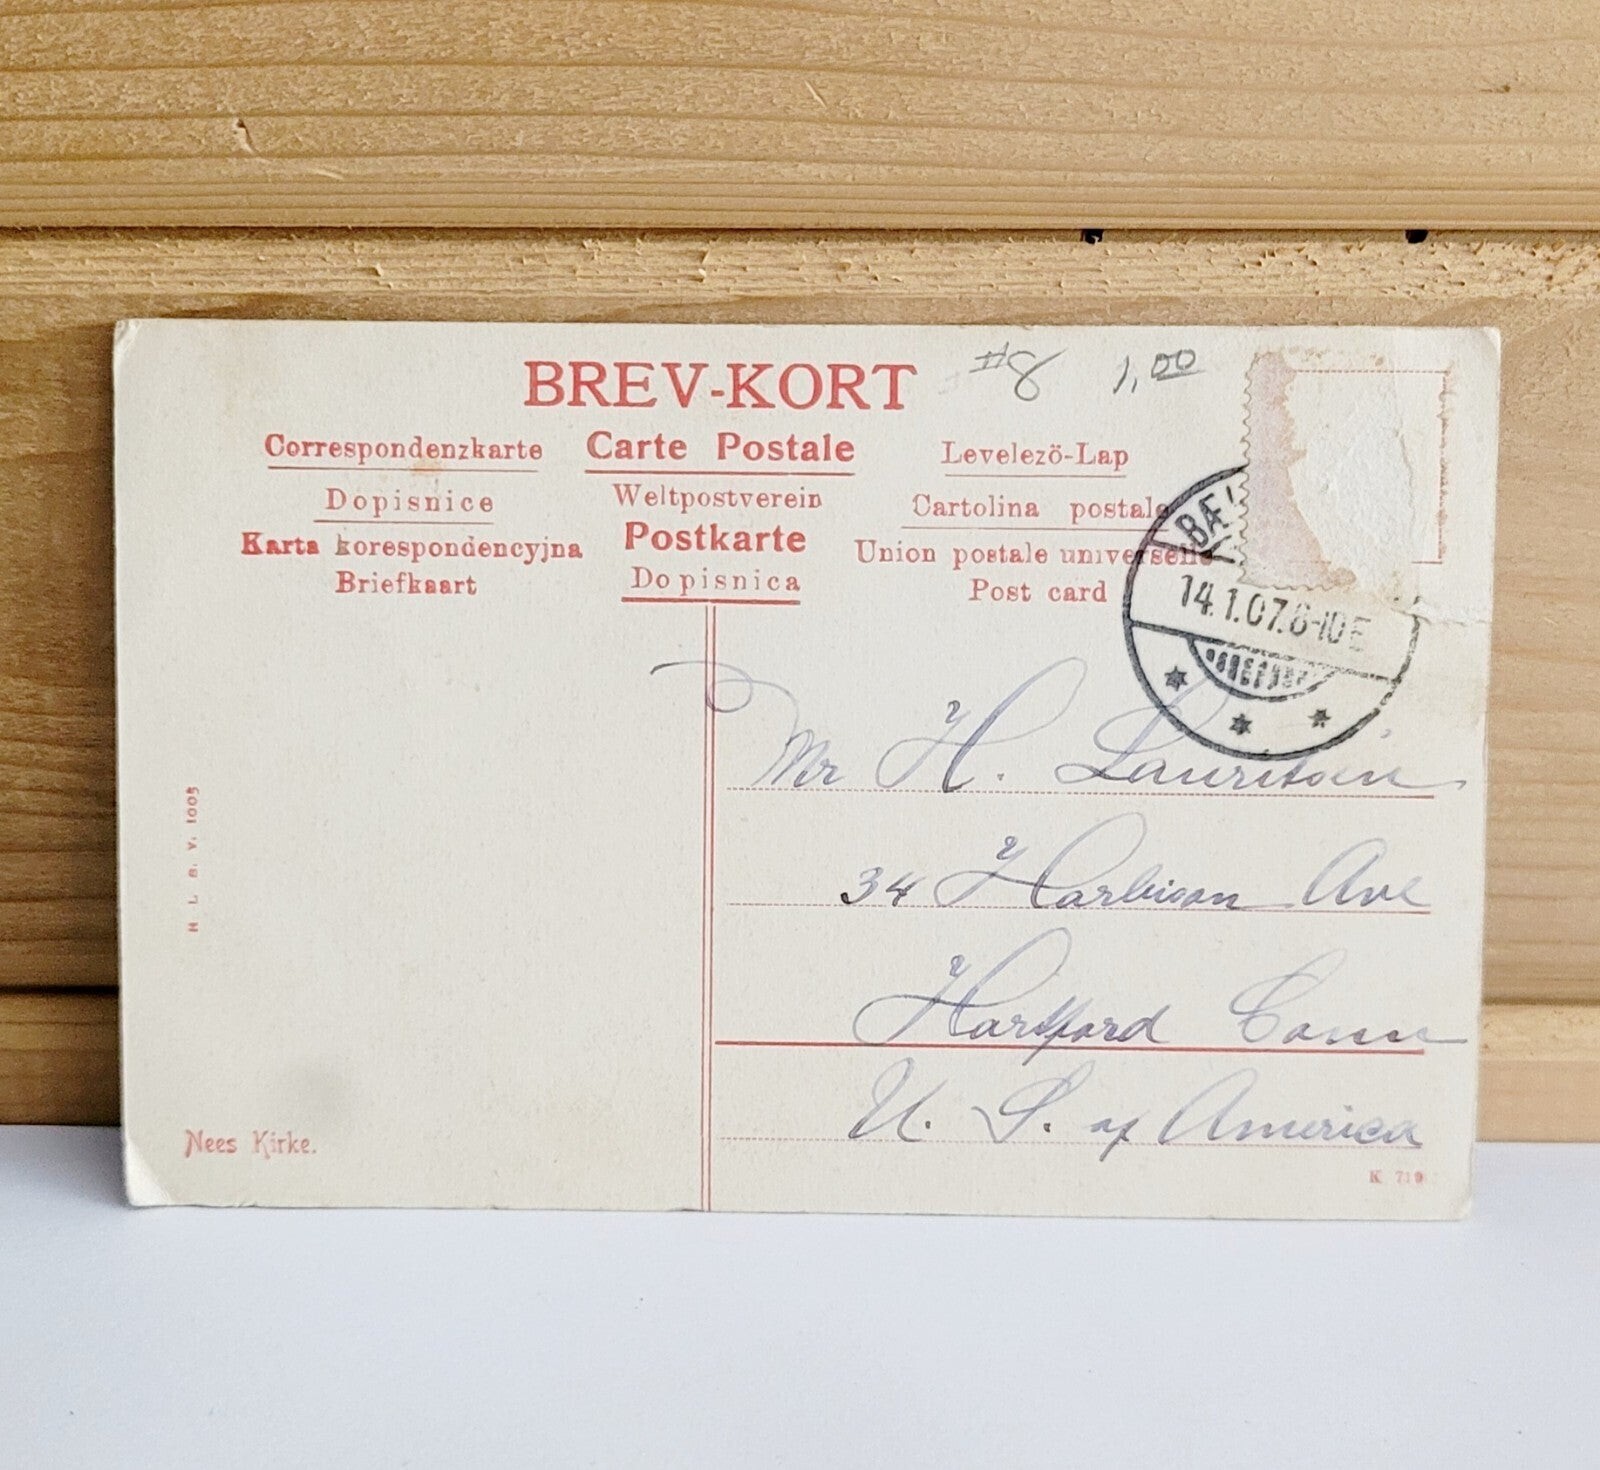 BREV-KORT
#8 1,00
Correspondenzkarte
Carte Postale
Levelezö-Lap
Dopisnice
Weltpostverein
Cartolina postale
Karta korespondencyjna
Postkarte
Union postale universelle
Briefkaart
Dopisnica
Post card
BÆ
14.1.07.8-10E
Mr H. Lauritsen
34 Harbison Ave
Hartford Conn
U. S. of America
H L B. V. 1005
Nees Kirke.
K 719